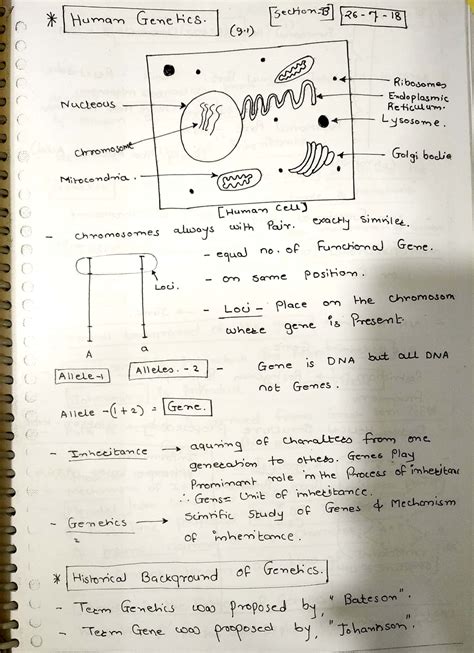 * Human Genetics.
(9.1)
[Section-B]
26-7-18
Nucleous
Chromosome
Mitocondria.
Ribosomes
Endoplasmic
Reticulum.
Lysosome.
Golgi bodia
[Human Cell]
- chromosomes always with Pair. exactly similer.
- equal no. of Functional Gene.
- on same position.
Loci.
- Loci - Place on the chromosom
where gene is Present.
A a
Allele-1 Alleles.-2
- Gene is DNA but all DNA
not Genes.
Allele -(1+2) = Gene.
- Inheritance → aquring of charactters from one
generation to others. Genes Play
Prominant role in the Process of inheritanc
∴ Gens= Unit of inheritance.
- Genetics → Scintific Study of Genes & Mechanism
of inheritance.
* Historical Background of Genetics.
- Term Genetics was proposed by, "Bateson".
- Term Gene was proposed by, "Johannson".